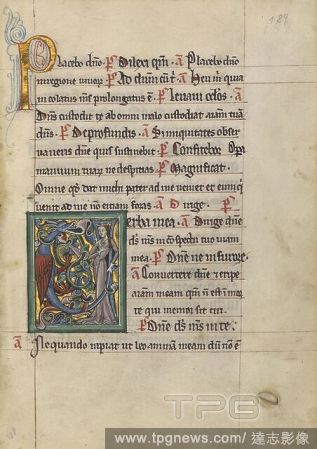 189
Placebo dno. ps Dilexi qm. a Placebo dno
in regione uiuor. ps Ad dnm cu t. a Heu m quia
incolatus ms prolongatus e. ps Leuaui oclos. a
Dns custodit te ab omni malo custodiat aiam tua
dns. ps De profundis. a Si iniquitates obser
uaueris dne quis sustinebit. ps Confitebor. Opa
manuum tuar ne despicias. ps Magnificat.
Omne qd dat michi pater ad me ueniet et eum q
uenit ad me no eiciam foras. a Dirige. ps
Verba mea. a Dirige dne
ds ms in cspectu tuo uiam
mea. ps Dne ne in furore.
a Conuertere dne et eripe
aiam meam qm n est in mor
te qui memor sit tui.
ps Dne ds ms in te.
a Ne quando rapiat ut leo animā meam dū nō e
TPG
www.tpgnews.com/達志影像